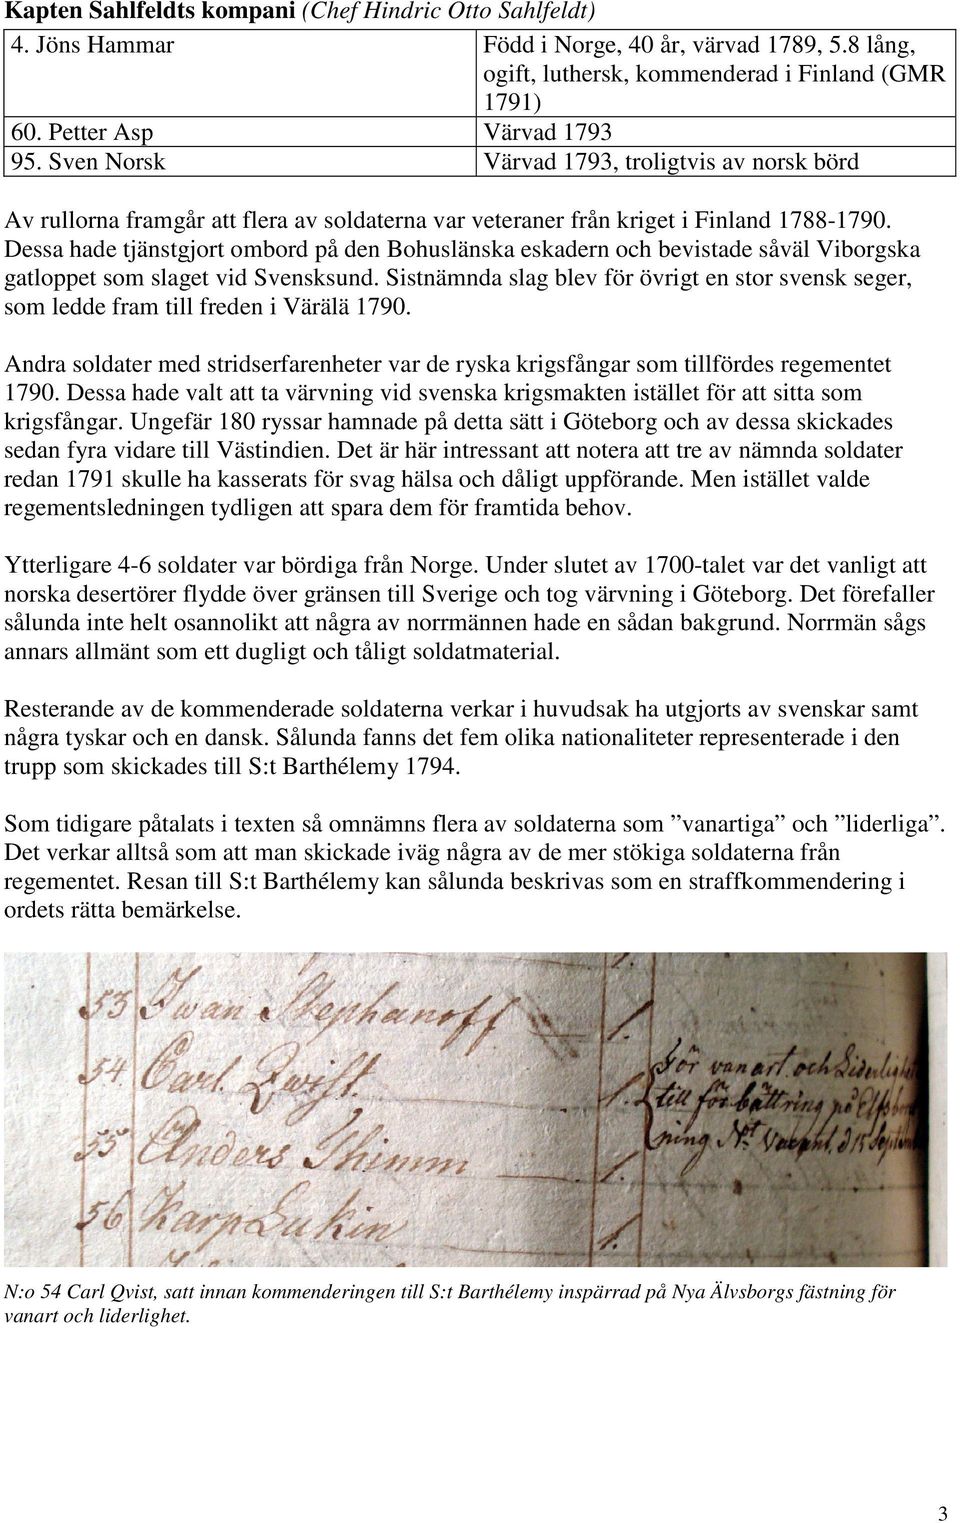 Kapten Sahlfeldts kompani (Chef Hindric Otto Sahlfeldt)
4. Jöns Hammar Född i Norge, 40 år, värvad 1789, 5.8 lång,
ogift, luthersk, kommenderad i Finland (GMR
1791)
60. Petter Asp Värvad 1793
95. Sven Norsk Värvad 1793, troligtvis av norsk börd
Av rullorna framgår att flera av soldaterna var veteraner från kriget i Finland 1788-1790.
Dessa hade tjänstgjort ombord på den Bohuslänska eskadern och bevistade såväl Viborgska
gatloppet som slaget vid Svensksund. Sistnämnda slag blev för övrigt en stor svensk seger,
som ledde fram till freden i Värälä 1790.
Andra soldater med stridserfarenheter var de ryska krigsfångar som tillfördes regementet
1790. Dessa hade valt att ta värvning vid svenska krigsmakten istället för att sitta som
krigsfångar. Ungefär 180 ryssar hamnade på detta sätt i Göteborg och av dessa skickades
sedan fyra vidare till Västindien. Det är här intressant att notera att tre av nämnda soldater
redan 1791 skulle ha kasserats för svag hälsa och dåligt uppförande. Men istället valde
regementsledningen tydligen att spara dem för framtida behov.
Ytterligare 4-6 soldater var bördiga från Norge. Under slutet av 1700-talet var det vanligt att
norska desertörer flydde över gränsen till Sverige och tog värvning i Göteborg. Det förefaller
sålunda inte helt osannolikt att några av norrmännen hade en sådan bakgrund. Norrmän sågs
annars allmänt som ett dugligt och tåligt soldatmaterial.
Resterande av de kommenderade soldaterna verkar i huvudsak ha utgjorts av svenskar samt
några tyskar och en dansk. Sålunda fanns det fem olika nationaliteter representerade i den
trupp som skickades till S:t Barthélemy 1794.
Som tidigare påtalats i texten så omnämns flera av soldaterna som ”vanartiga” och ”liderliga”.
Det verkar alltså som att man skickade iväg några av de mer stökiga soldaterna från
regementet. Resan till S:t Barthélemy kan sålunda beskrivas som en straffkommendering i
ordets rätta bemärkelse.
53 Iwan Stephanoff 1.
54. Carl Qwist. 1. För vanart och Liderlighet
till förbättring på Elfsbor
55 Anders Thimm 1. ning Nt Vacant. d 15 Septem
56 Karp Lukin 1.
N:o 54 Carl Qvist, satt innan kommenderingen till S:t Barthélemy inspärrad på Nya Älvsborgs fästning för
vanart och liderlighet.
3